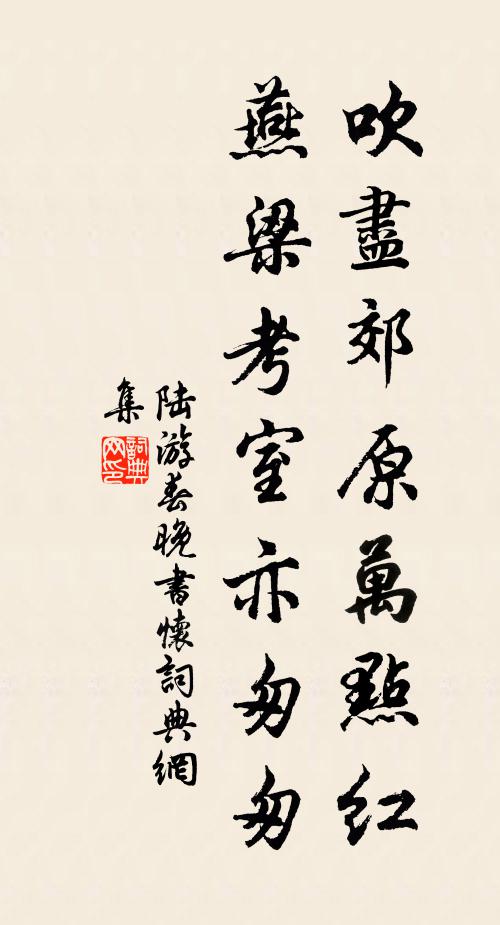 吹盡郊原萬點紅
燕梁考室亦匆匆
陸游春晚書懷詞典網
集
詞典
网印